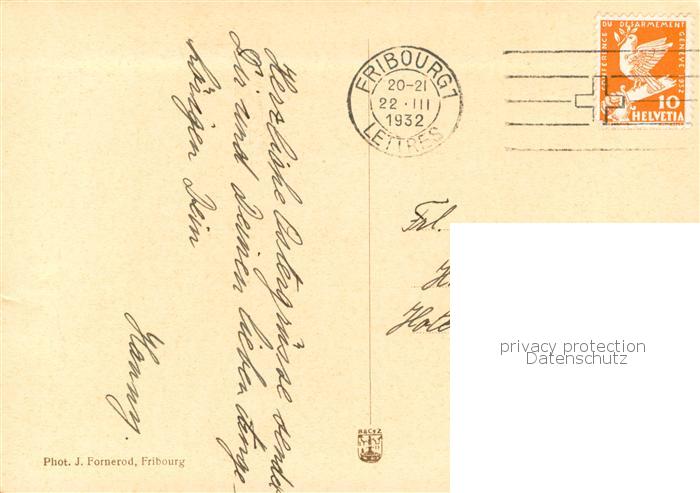 FRIBOURG 1
20-21
22·III
1932
LETTRES
CONFERENCE DU DESARMEMENT GENEVE 1932
10
HELVETIA
Herzliche Ostergrüsse sendet
Dir und Deinen lieben Ange-
hörigen Dein
Hanny.
Frl.
H
Hote
privacy protection
Datenschutz
R&CºZ
Phot. J. Fornerod, Fribourg